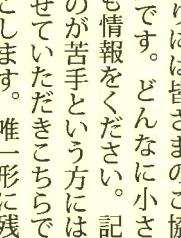 りには皆さまのご協
です。どんなに小さ
も情報をください。記
のが苦手という方には
せていただきこちらで
こします。唯一形に残